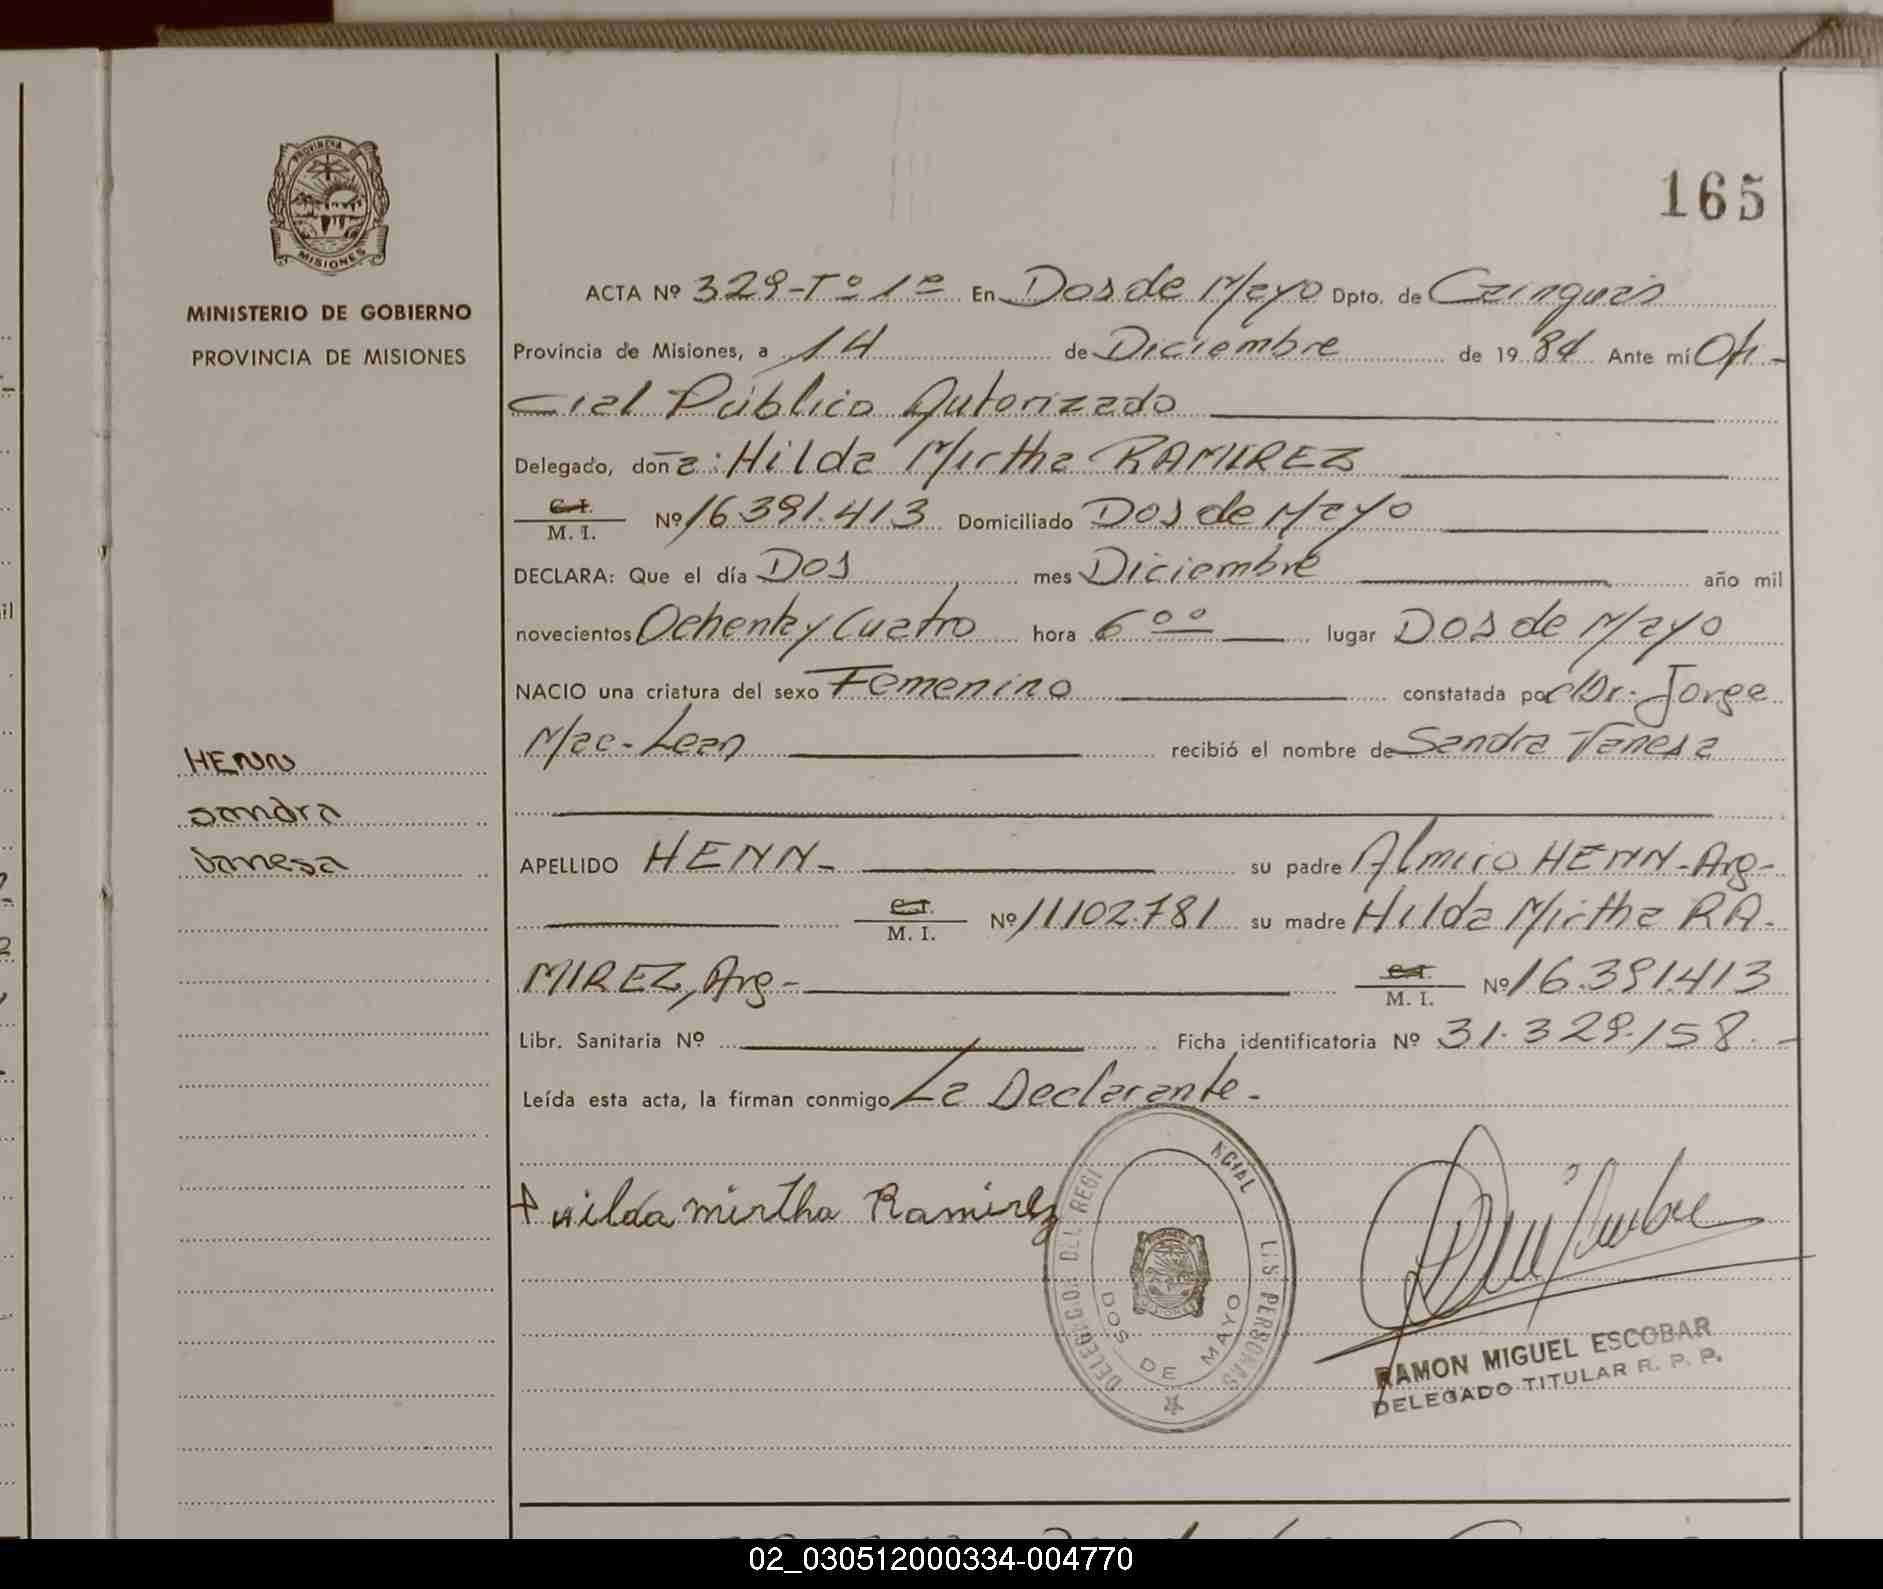 PROVINCIA DE
MISIONES
MINISTERIO DE GOBIERNO
PROVINCIA DE MISIONES
HENN
Sandra
Vanesa
165
ACTA Nº 329-Tº 1º En Dos de Mayo Dpto. de Cainguás
Provincia de Misiones, a 14 de Diciembre de 1984 Ante mí Ofi-
cial Público Autorizado
Delegado, doña: Hilda Mirtha RAMIREZ
C.I.
M. I. Nº 16.391.413 Domiciliado Dos de Mayo
DECLARA: Que el día Dos mes Diciembre año mil
novecientos Ochenta y Cuatro hora 6ºº lugar Dos de Mayo
NACIO una criatura del sexo Femenino constatada por el Dr. Jorge
Mac-Lean recibió el nombre de Sandra Vanesa
APELLIDO HENN- su padre Almiro HENN-Arg-
C.I.
M. I. Nº 11.102.781 su madre Hilda Mirtha RA-
MIREZ, Arg- C.I.
M. I. Nº 16.391.413
Libr. Sanitaria Nº Ficha identificatoria Nº 31.329.158.-
Leída esta acta, la firman conmigo La Declarante-
Hilda Mirtha Ramirez
DOS DE MAYO
RAMON MIGUEL ESCOBAR
DELEGADO TITULAR R. P. P.
02_030512000334-004770